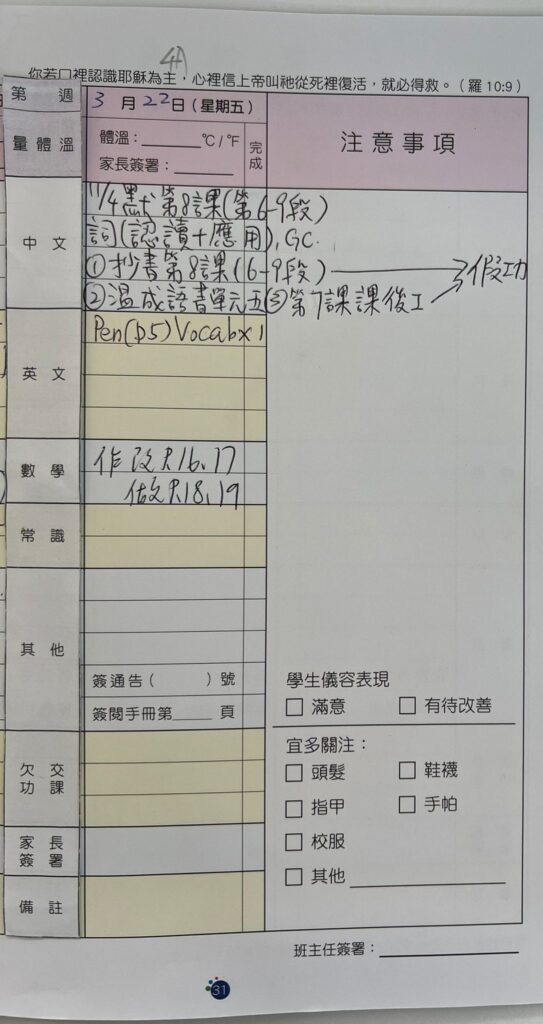 4A
你若口裡認識耶穌為主，心裡信上帝叫祂從死裡復活，就必得救。（羅 10:9）
第 週
3 月 22 日（星期五）
注意事項
量體溫
體溫：______℃/℉
家長簽署：______
完成
中文
11/4默書第8課(第6-9段)
詞(認讀+應用), GC.
①抄書第8課(6-9段)
②溫成語書單元五③第7課課後工
假功
英文
Pen(D5)Vocabx1
數學
作改P.16、17
做P.18、19
常識
其他
簽通告（ ）號
簽閱手冊第_____頁
學生儀容表現
□ 滿意 □ 有待改善
宜多關注：
□ 頭髮 □ 鞋襪
□ 指甲 □ 手帕
□ 校服
□ 其他
欠交功課
家長簽署
備註
班主任簽署：
31